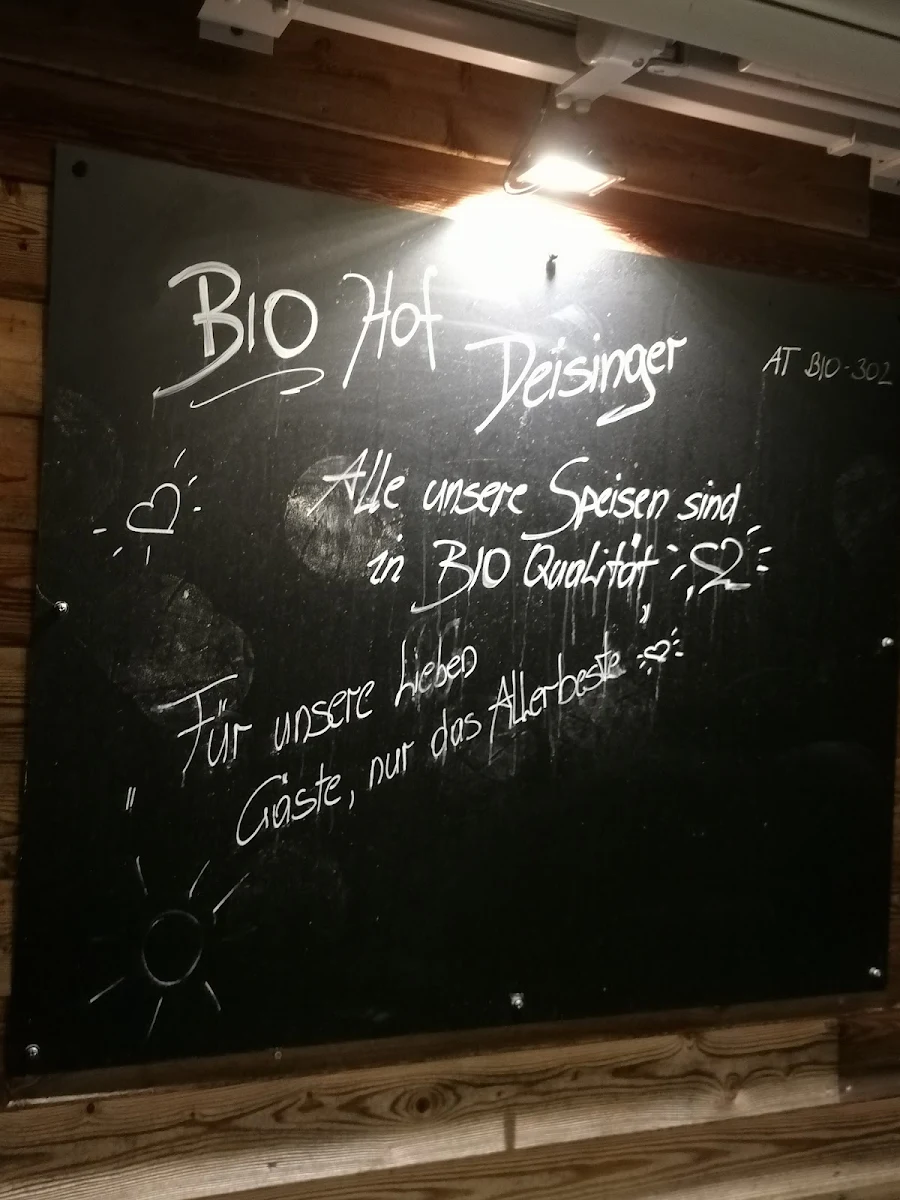 BIO Hof Deisinger
AT BIO-302
Alle unsere Speisen sind
in BIO Qualität
Für unsere Lieben
Gäste, nur das Allerbeste
"